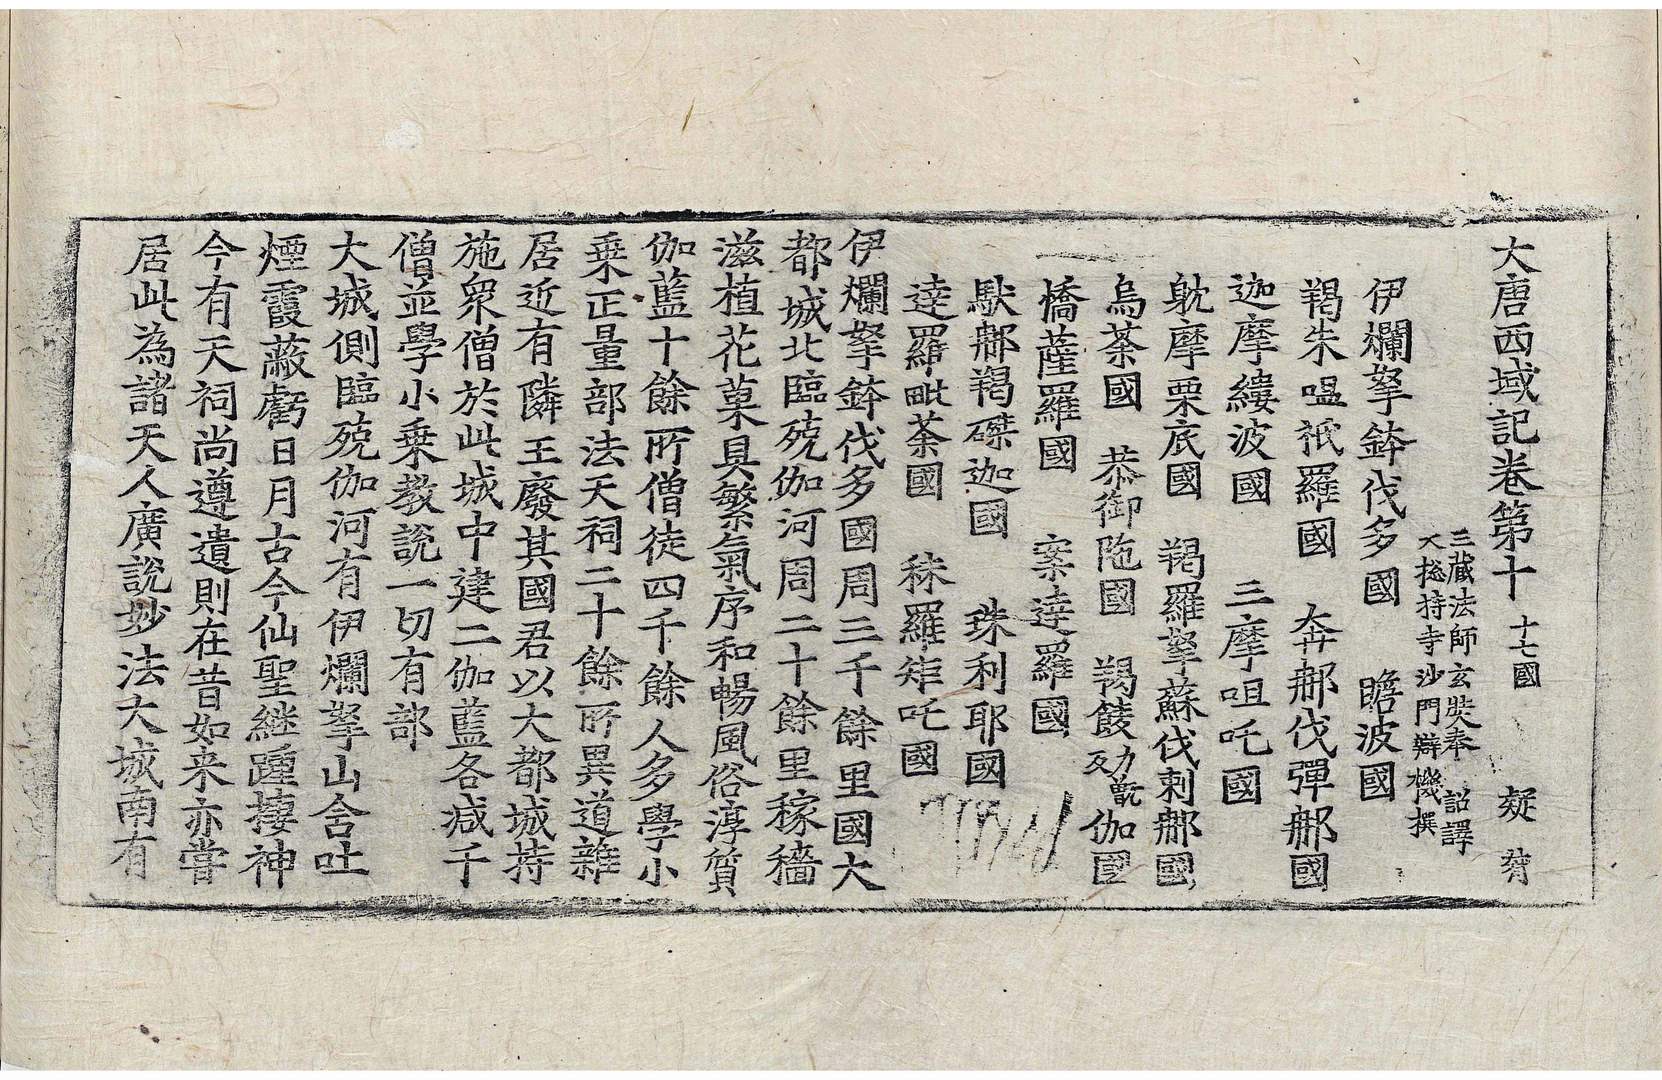 大唐西域記卷第十 十七國 疑 𦙍
三藏法師玄奘奉 詔譯
大捴持寺沙門辯機撰
伊爛拏鉢伐多國 瞻波國
羯朱嗢祇羅國 奔那伐彈那國
迦摩縷波國 三摩呾吒國
躭摩栗底國 羯羅拏蘇伐剌那國
烏荼國 恭御陁國 羯䬆勒甑伽國
憍薩羅國 案逹羅國
馱那羯磔迦國 珠利耶國
逹羅毗荼國 秣羅矩吒國
伊爛拏鉢伐多國周三千餘里國大
都城北臨殑伽河周二十餘里稼穡
滋植花菓具繁氣序和暢風俗淳質
伽藍十餘所僧徒四千餘人多學小
乗正量部法天祠二十餘所異道雜
居近有隣王廢其國君以大都城持
施衆僧於此城中建二伽藍各減千
僧並學小乗教説一切有部
大城側臨殑伽河有伊爛拏山含吐
煙霞蔽虧日月古今仙聖継踵棲神
今有天祠尚遵遺則在昔如来亦甞
居此為諸天人廣說妙法大城南有